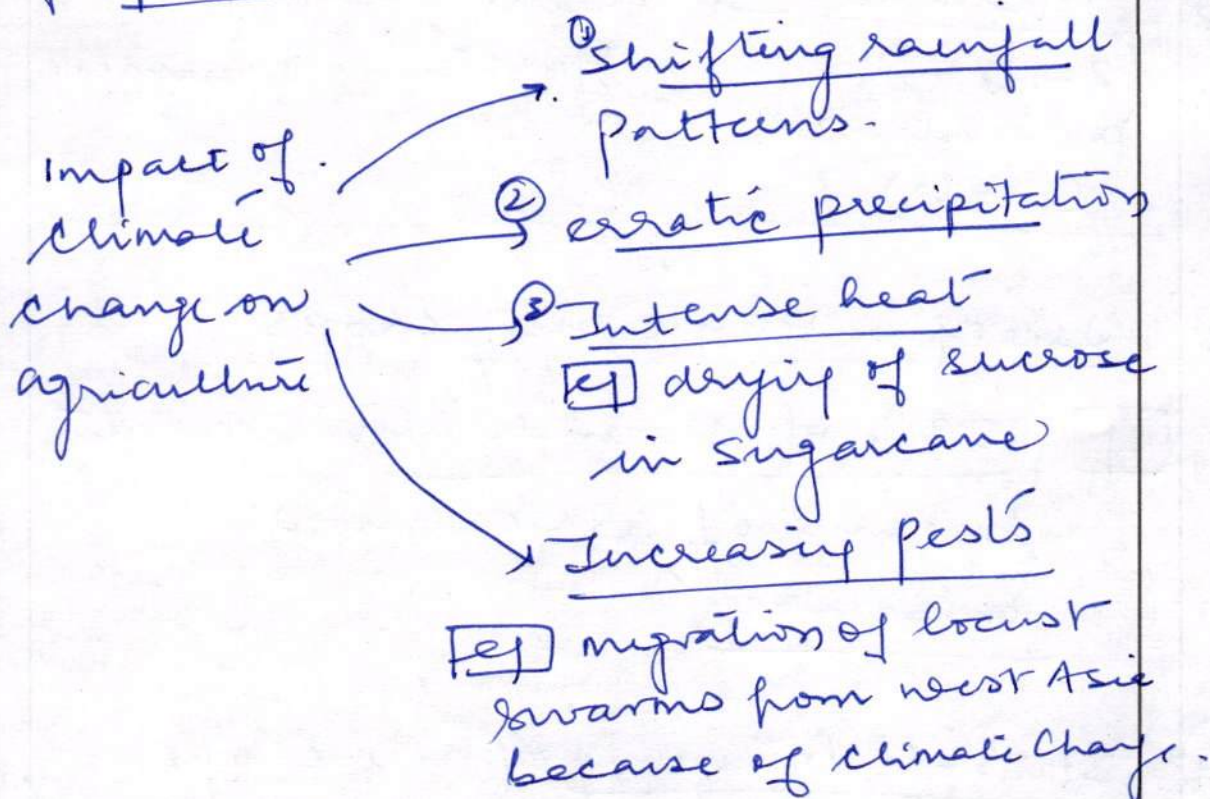 Impact of
climate
change on
agriculture
① Shifting rainfall
patterns.
② erratic precipitation
③ Intense heat
eg drying of sucrose
in sugarcane
Increasing pests
eg migration of locust
swarms from west Asia
because of climate change.